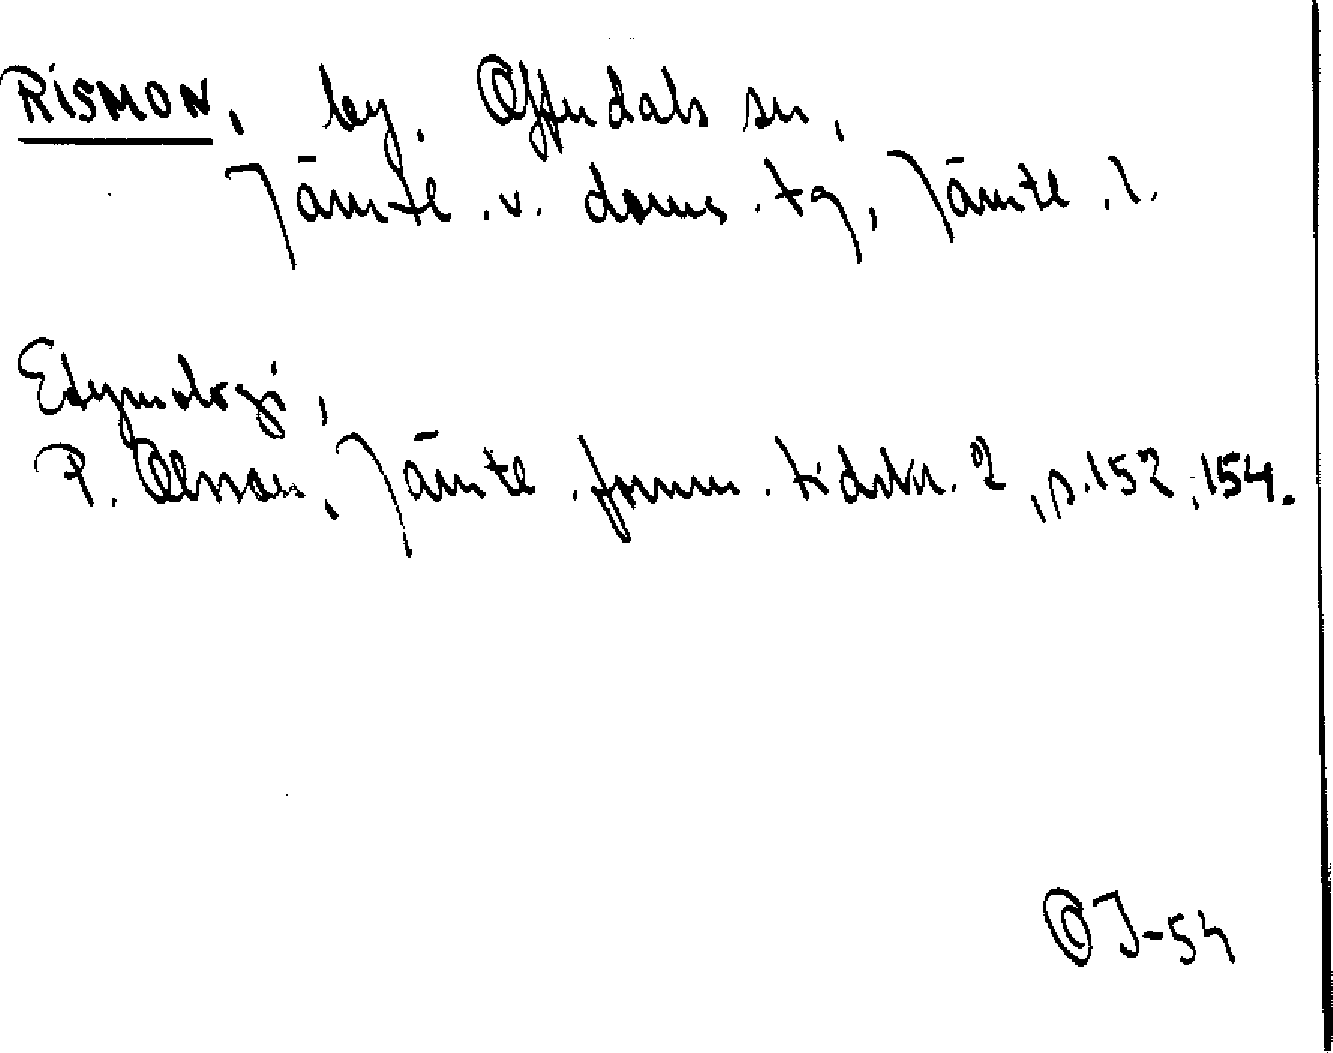 RISMON, by, Offerdals sn,
Jämtl. v. doms. tg, Jämtl. l.
Etymologi,
P. Olsson, Jämtl. fornm. tidskr. 2, s. 152, 154.
OJ-54